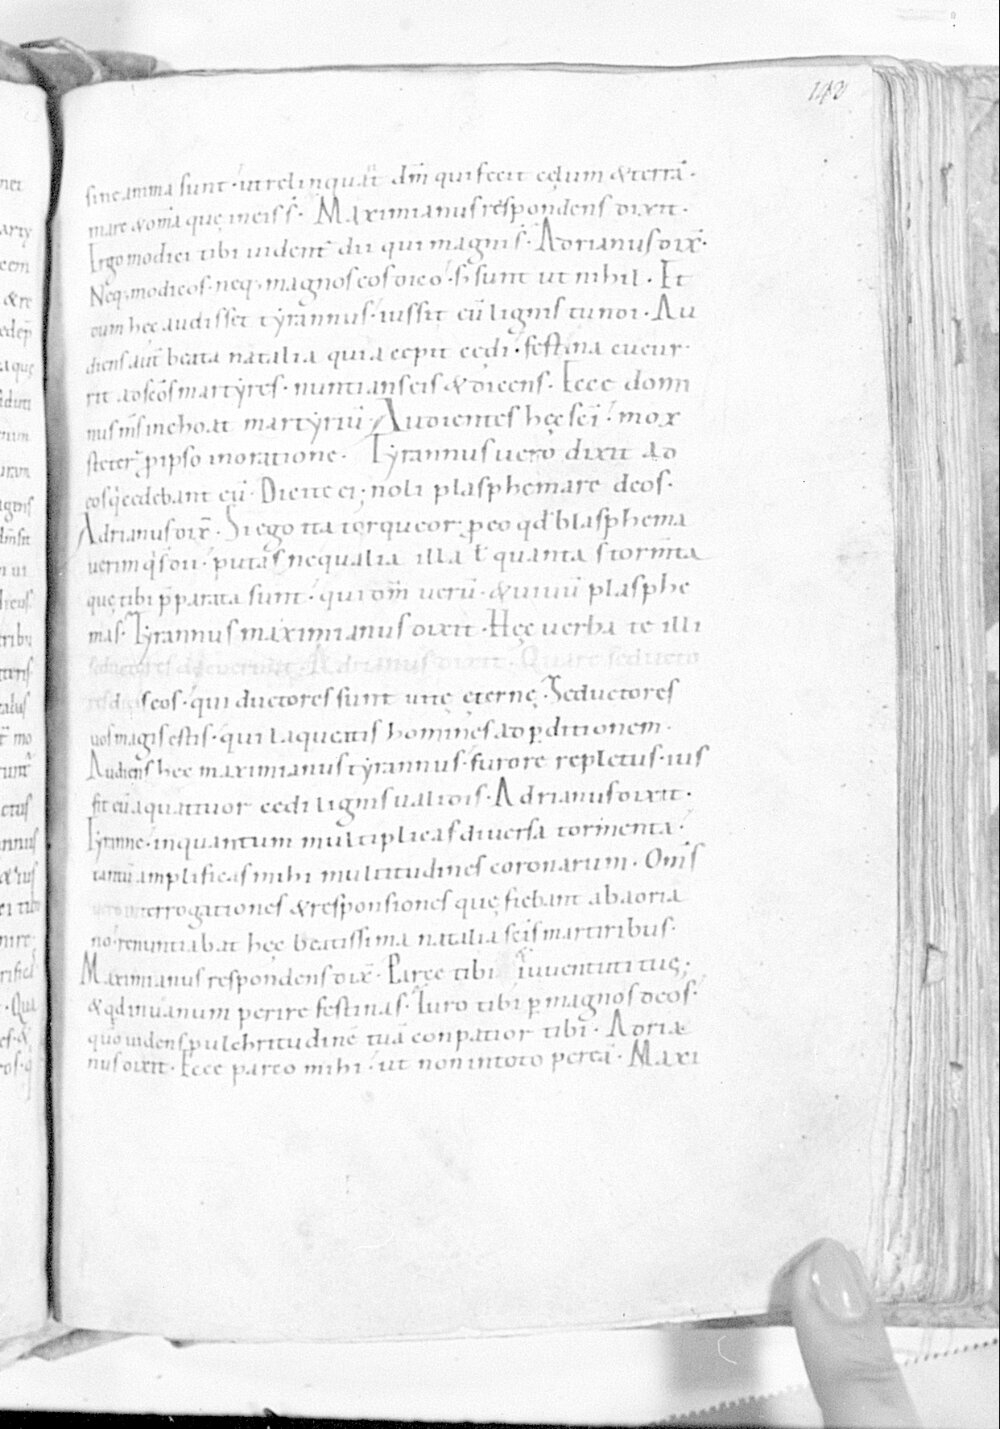 142
sine anima sunt · ut relinquat̄ dm̄ qui fecit cęlum & terrā ·
mare & om̄ia quę in eis s̄ · Maximianus respondens dixit ·
Ergo modici tibi uident̄ dii qui magni s̄ · Adrianus dix̄ ·
Neq; modicos · neq; magnos eos dico · s; sunt ut nihil · Et
cum hęc audisset tyrannus · iussit eū lignis tundi · Au
diens aut̄ beata natalia quia cepit cędi · festina cucur
rit ad sc̄os martyres · nuntians eis & dicens · Ecce domi
nus m̄s inchoat martyriū · Audientes hęc sc̄i · mox
steter̄ ꝓ ipso in oratione · Tyrannus uero dixit ad
eos q̇ cedebant eū · Dicite ei · noli plasphemare deos ·
Adrianus dix̄ · Si ego ita torqueor ꝓ eo qd̄ blasphema
uerim q̇ s̄ dii · putas ne qualia illa ł quanta s tormta
quę tibi p̄parata sunt · qui dm̄ uerū · & uiuū plasphe
mas · Tyrannus maximianus dixit · Hęc uerba te illi
seductores docuerunt · Adrianus dixit · Quare seducto
res dicis eos · qui ductores sunt uitę ęternę · Seductores
uos magis estis · qui laqueatis homines ad ꝑditionem ·
Audiens hęc maximianus tyrannus · furore repletus · ius
sit eū a quattuor cedi lignis ualidis · Adrianus dixit ·
Tyranne · in quantum multiplicas diuersa tormenta ·
tantū amplificas mihi multitudines coronarum · Om̄s
uero interrogationes & responsiones quę fiebant ab adria
no · renuntiabat hęc beatissima natalia sc̄is martiribus ·
Maximianus respondens dix̄ · Parce tibi iuuentuti tuę ·
& qd in uanum perire festinas · Iuro tibi ꝑ magnos deos ·
quō uidens pulchritudinē tuā conpatior tibi · Adria
nus dixit · Ecce parco mihi · ut non in toto pereā · Maxi